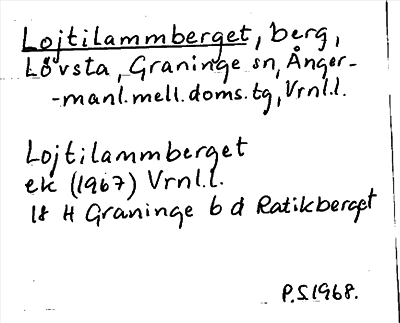 Lojtilammberget, berg,
Lövsta, Graninge sn, Ånger-
-manl. mell. doms. tg, Vrnl.l.
Lojtilammberget
ek (1967) Vrnl.l.
18 H Graninge 6 d Ratikberget
P.S. 1968.